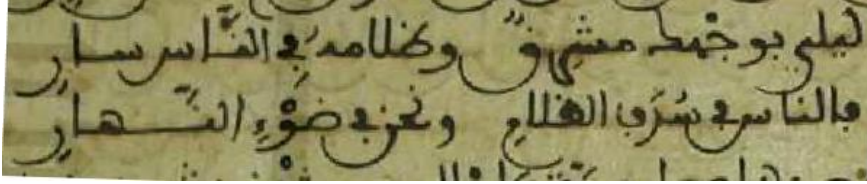 ليلي بوجهك مشرق وظلامه في النَّاس سارِ
فالناس في سُدَف الظلامِ ونحن في ضَوْءِ النَّهارِ